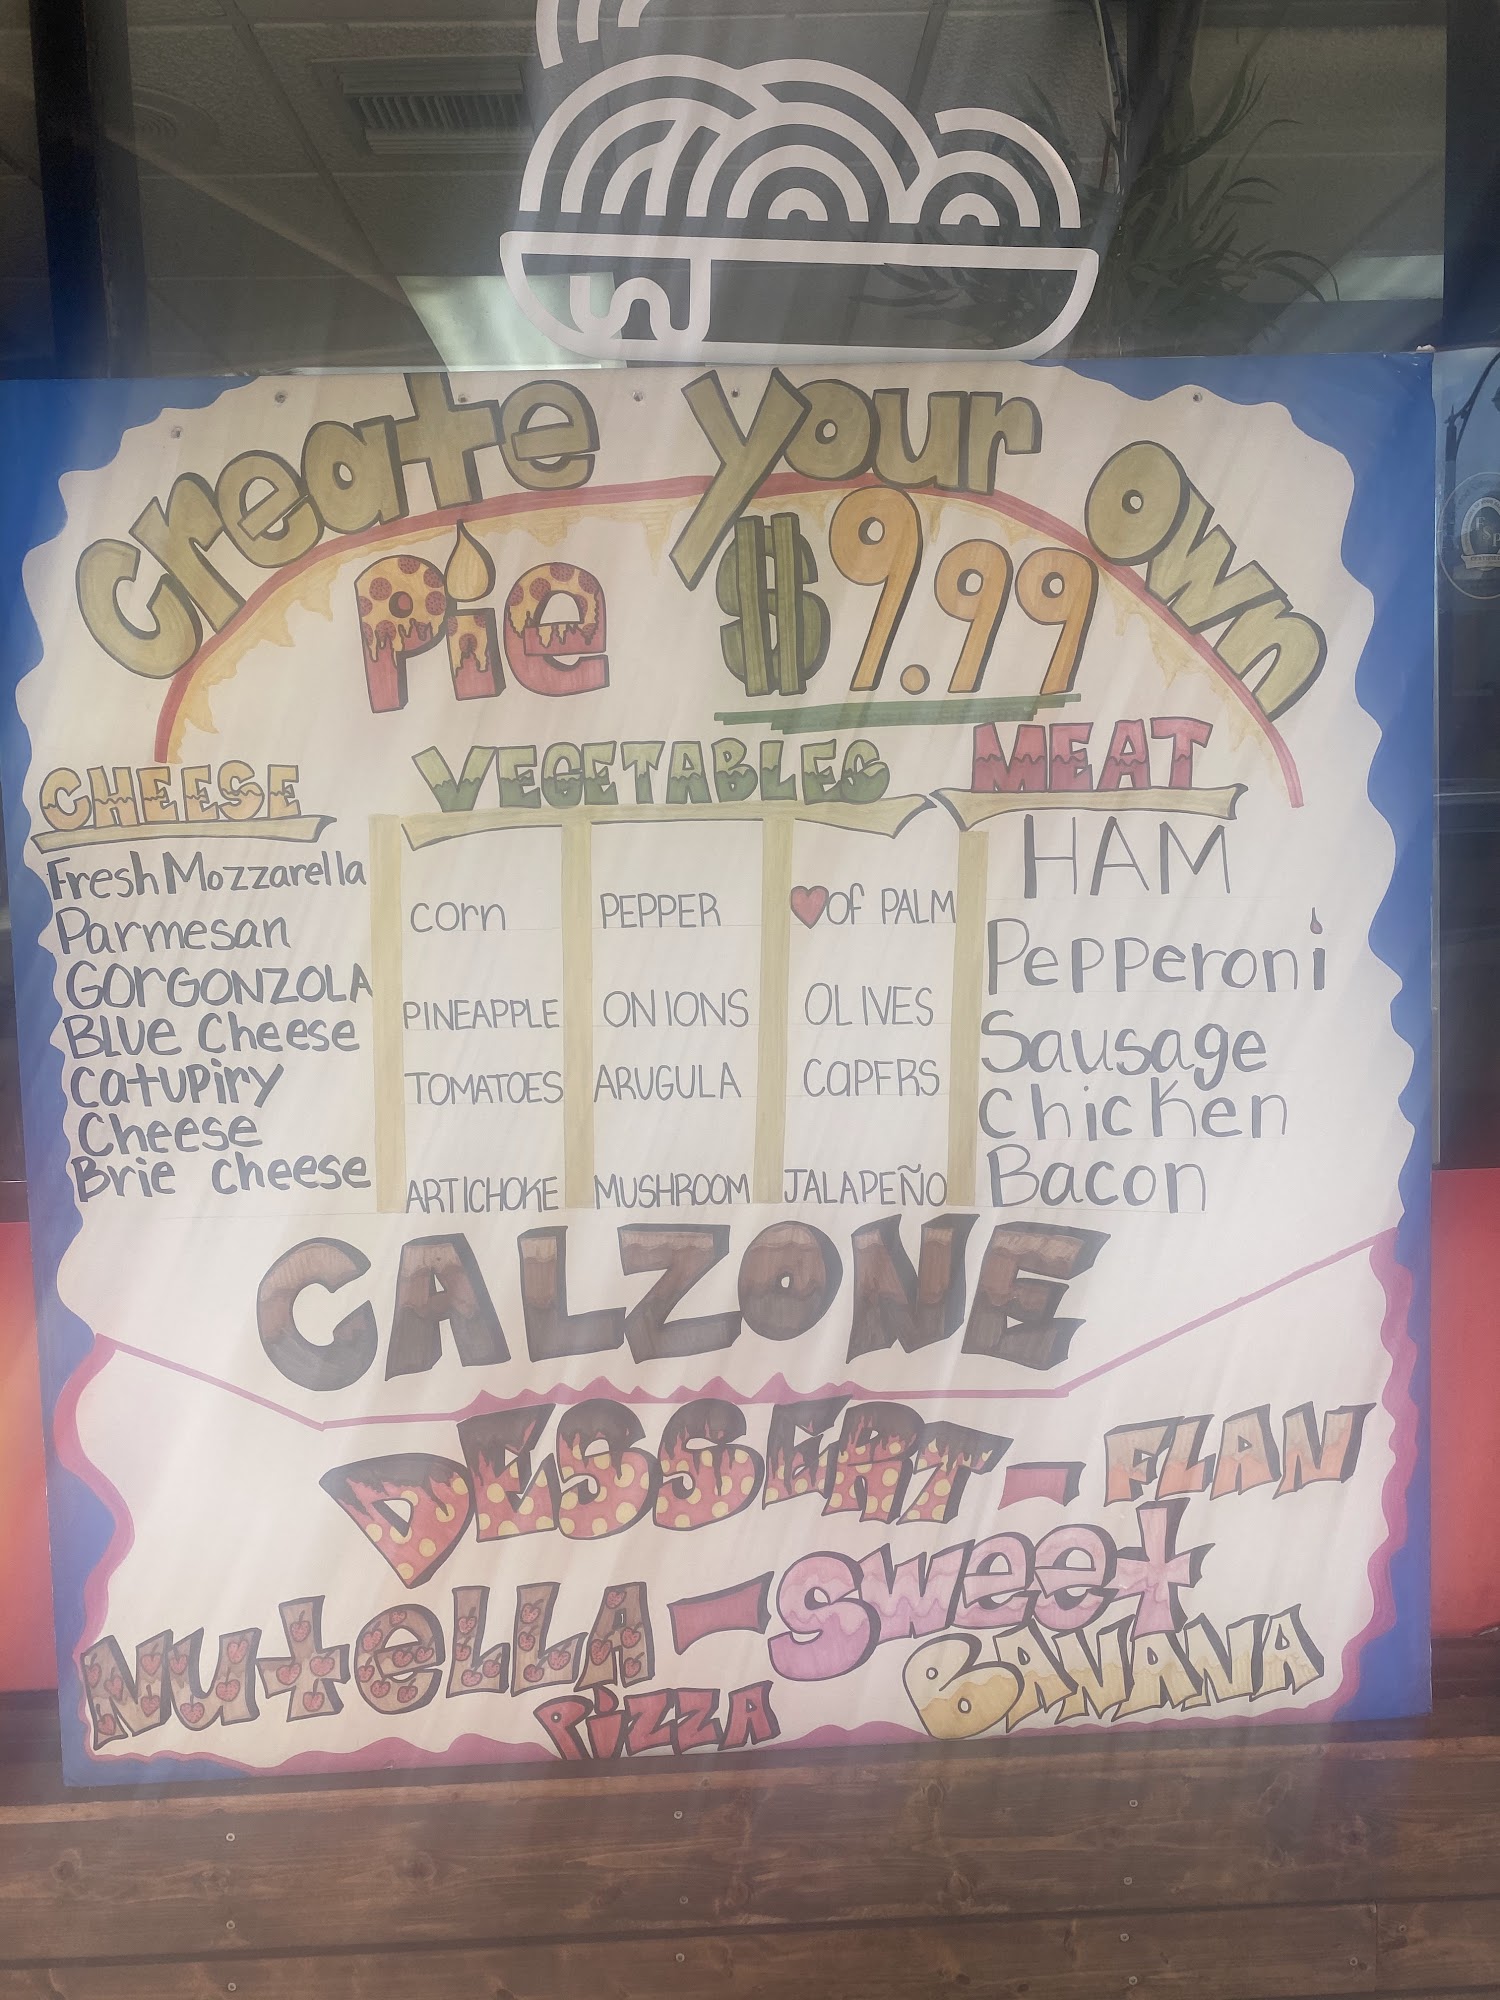 create your own
Pie $9.99
CHEESE
Fresh Mozzarella
Parmesan
GORGONZOLA
BLUE Cheese
Catupiry
Cheese
Brie cheese
VEGETABLES
corn PEPPER ❤️OF PALM
PINEAPPLE ONIONS OLIVES
TOMATOES ARUGULA CAPERS
ARTICHOKE MUSHROOM JALAPEÑO
MEAT
HAM
Pepperoni
Sausage
Chicken
Bacon
CALZONE
DESSERT - FLAN
NUtELLA - Sweet
PiZZA BANANA